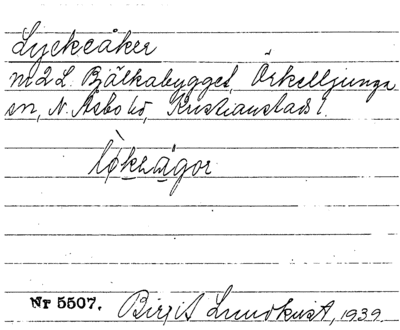 Lyckeåker
m2L. Bjälkabygget, Örkelljunga
sn, N. Åsbo hd, Kristianstads l.
lø̀kraágor
Nr 5507. Birgit Lundkvist, 1939